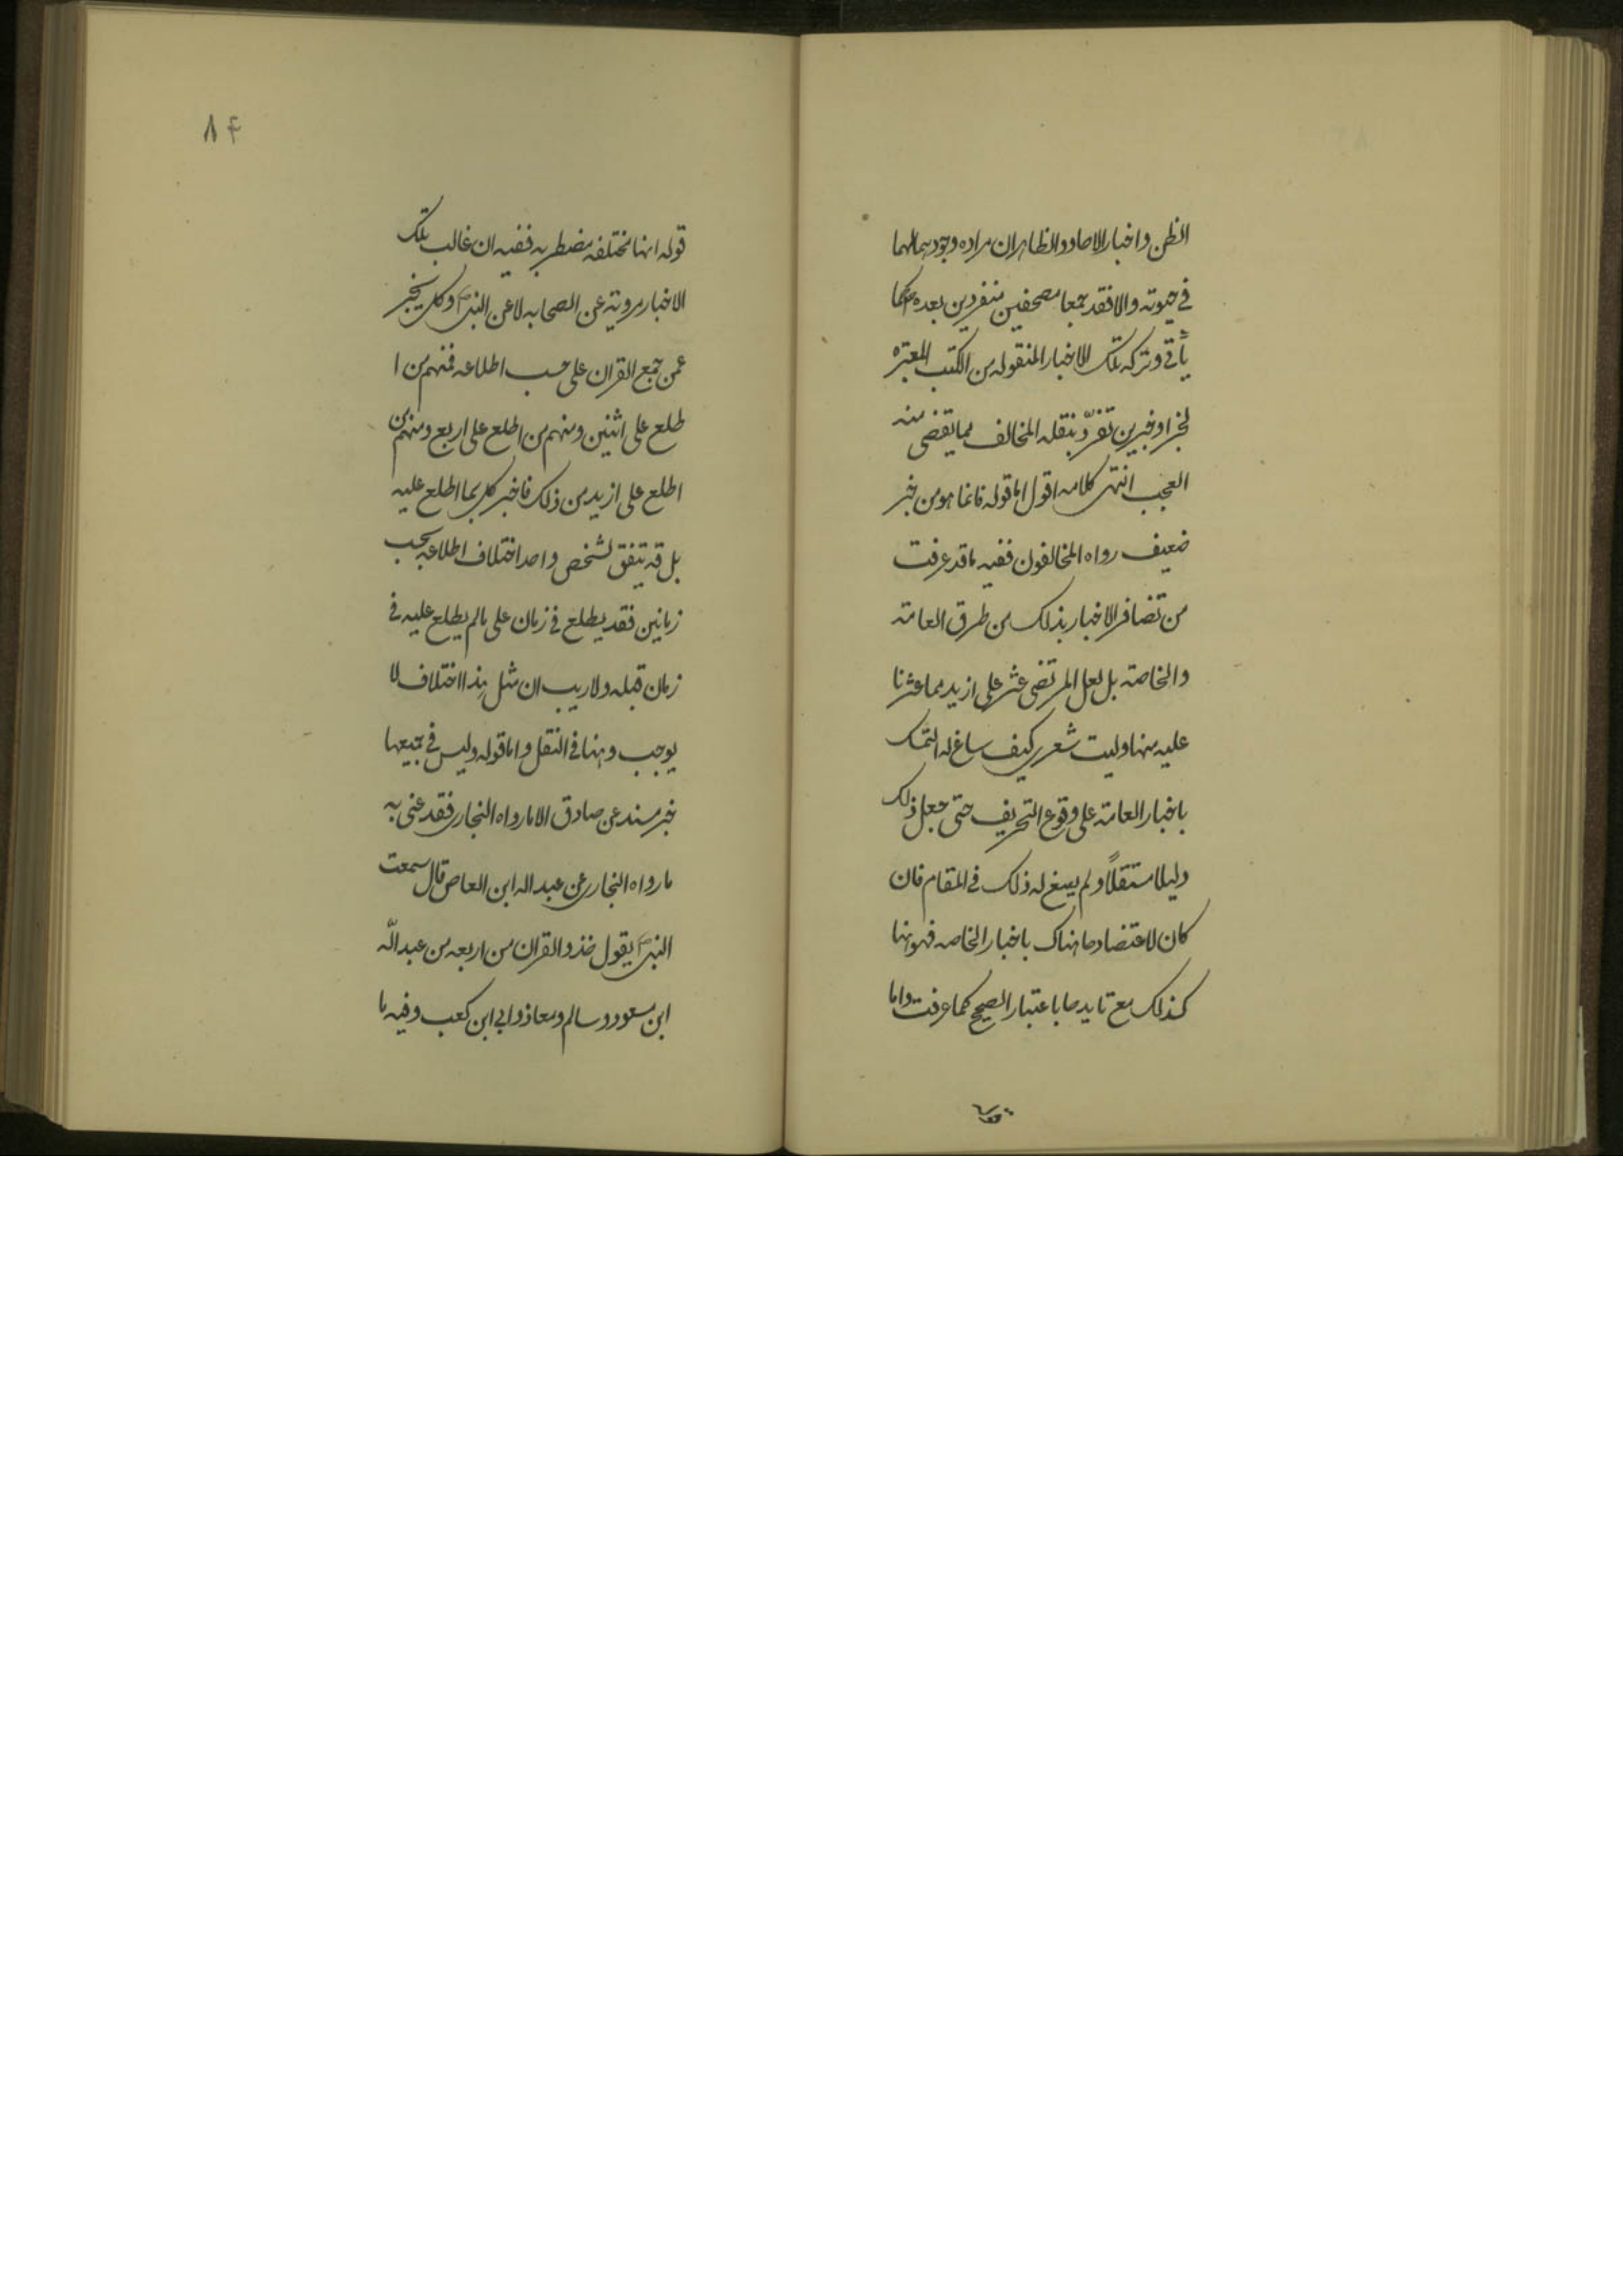 الظن و اخبار الاحاد و الظاهر ان مراده وجودهما لهما
فی حیوته و الا فقد جمعا مصحفین منفردین بعده ص کما
یأتی و ترکه تلک الاخبار المنقوله من الکتب المعتبره
لخبر او خبرین تفرّد بنقله المخالف مما یقضی منه
العجب انتهی کلامه اقول اما قوله فانما هو من خبر
ضعیف رواه المخالفون ففیه ما قد عرفت
من تضافر الاخبار بذلک من طرق العامة
و الخاصة بل لعل المرتضی عثر علی ازید مما عثرنا
علیه منها و لیت شعری کیف ساغ له التمسک
باخبار العامة علی وقوع التحریف حتی جعل ذلک
دلیلا مستقلاً و لم یسغ له ذلک فی المقام فان
کان لاعتضادها هناک باخبار الخاصه فهو هنا
کذلک مع تایدها باعتبار الصحیح کما عرفت و اما
قوله
۸۴
قوله انها مختلفه مضطربه ففیه ان غالب تلک
الاخبار مرویة عن الصحابه لا عن النبی ص و کل یخبر
عمن جمع القران علی حسب اطلاعه فمنهم من ا
طلع علی اثنین و منهم من اطلع علی اربع و منهم من
اطلع علی ازید من ذلک فاخبر کل بما اطلع علیه
بل قد یتفق لشخص واحد اختلاف اطلاعه بحسب
زمانین فقد یطلع فی زمان علی مالم یطلع علیه فی
زمان قبله و لاریب ان مثل هذا اختلاف لا
یوجب وهنا فی النقل و اما قوله و لیس فی جمیعها
خبر مسند عن صادق الا ما رواه النجاری فقد عنی به
ما رواه النجاری عن عبد اله ابن العاص قال سمعت
النبی ص یقول خذو القران من اربعه من عبد الله
ابن مسعود و سالم و معاذ و ابی ابن کعب و فیه ما